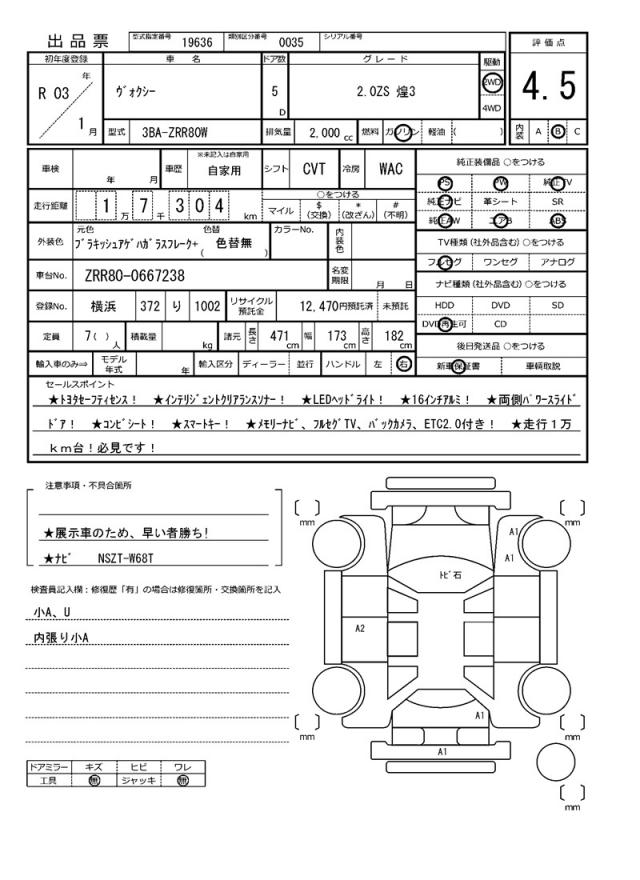 出品票 型式指定番号 19636 類別区分番号 0035 シリアル番号
評価点
4.5
内装 A B C
初年度登録 車名 ドア数 グレード 駆動
R 03 年 1 月 ヴォクシー 5 D 2.0ZS 煌3 2WD 4WD
型式 3BA-ZRR80W 排気量 2,000 cc 燃料 ガソリン 軽油 ( )
車検 年 月 車歴 ※未記入は自家用 自家用 シフト CVT 冷房 WAC
走行距離 1 万 7 千 3 0 4 km
○をつける
マイル $ (交換) * (改ざん) # (不明)
外装色 元色 ブラキッシュアゲハガラスフレーク+ 色替 ( 色替無 ) カラーNo. 内装色
車台No. ZRR80-0667238 名変期限 月 日
登録No. 横浜 372 り 1002 リサイクル預託金 12,470円預託済 未預託
定員 7( ) 人 積載量 kg 諸元 長さ 471 cm 幅 173 cm 高さ 182 cm
輸入車のみ⇒ モデル年式 年 輸入区分 ディーラー 並行 ハンドル 左 右
純正装備品 ○をつける
PS PW 純正TV
純正ナビ 革シート SR
純正AW エアB ABS
TV種類 (社外品含む) ○をつける
フルセグ ワンセグ アナログ
ナビ種類 (社外品含む) ○をつける
HDD DVD SD
DVD再生可 CD
後日発送品 ○をつける
新車保証書 車輌取説
セールスポイント
★トヨタセーフティセンス! ★インテリジェントクリアランスソナー! ★LEDヘッドライト! ★16インチアルミ! ★両側パワースライド
ドア! ★コンビシート! ★スマートキー! ★メモリーナビ、フルセグTV、バックカメラ、ETC2.0付き! ★走行1万
km台!必見です!
注意事項・不具合箇所
★展示車のため、早い者勝ち!
★ナビ NSZT-W68T
検査員記入欄:修復歴「有」の場合は修復箇所・交換箇所を記入
小A、U
内張り小A
ドアミラー キズ ヒビ ワレ
工具 無 ジャッキ 無
mm
mm
A1
A1
トビ石
A2
A1
mm
mm
A1
mm